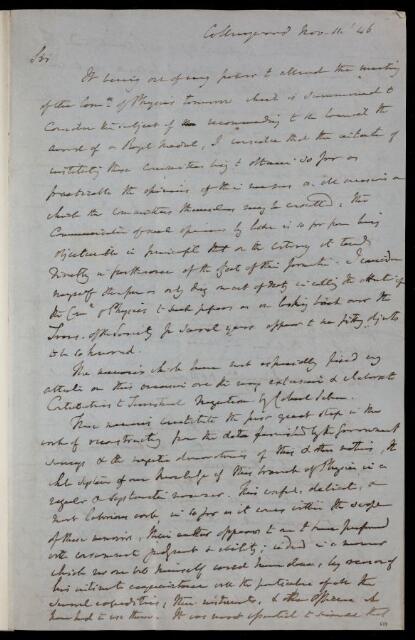 Collingwood Nov. 11 '46
Sir
It being out of my power to attend the meeting
of the Com.ee of Physics tomorrow which is summoned to
consider the subject of recommending to the Council the
award of a Royal Medal, I consider that the intention of
instituting these Committees being to obtain so far as
practicable the opinions of their members on all occasions on
which the Committees themselves may be consulted, the
Communication of such opinions by letter is so far from being
objectionable in principle that on the contrary it tends
directly in furtherance of the object of their formation. I consider
myself therefore as only doing an act of duty in calling the attention of
the Com.ee of Physics to such papers as on looking back over the
Trans. of the Society for several years appear to me fitting objects
to be so honored.
The memoirs which have most especially fixed my
attention on this occasion are the very extensive & elaborate
Contributions to Terrestrial Magnetism by Colonel Sabine.
These memoirs constitute the first great step in the
work of reconstructing from the data furnished by the Government
Surveys & the magnetic observatories of this & other nations, the
whole system of our knowledge of this branch of Physics in a
regular & systematic manner. This complex, delicate, &
most laborious work in so far as it comes within the scope
of these memoirs, their author appears to me to have performed
with consummate judgment & ability; indeed in a manner
which no one but himself could have done, by reason of
his intimate acquaintance with the particulars of all the
several expeditions, their instruments, & the officers who
had to use them. It was most essential to